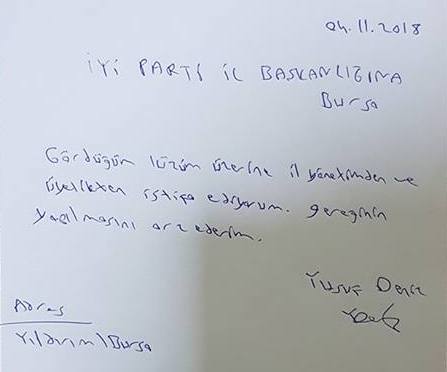 04.11.2018
İYİ PARTİ İL BAŞKANLIĞINA
Bursa
Gördüğüm lüzüm üzerine il yönetimden ve
üyelikten istifa ediyorum. gereğinin
yapılmasını arz ederim.
Yusuf Deniz
Adres
Yıldırım \ Bursa